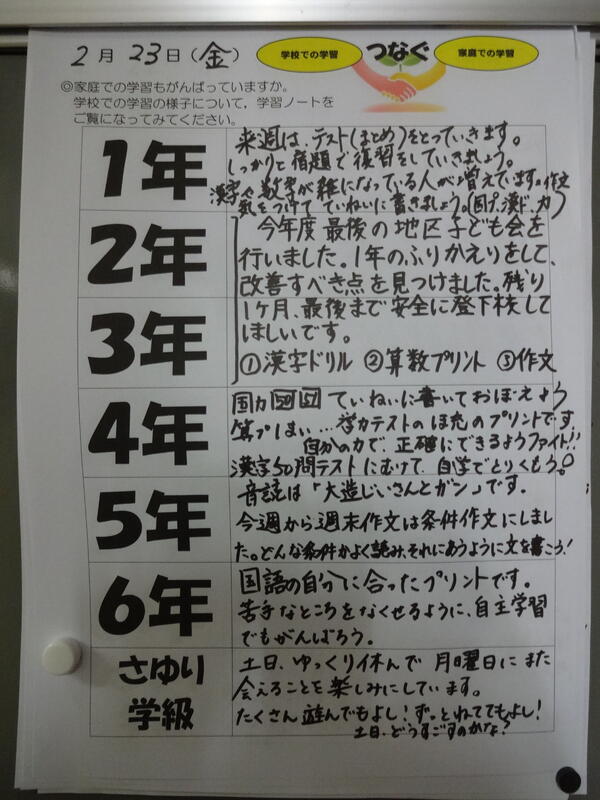 2月23日(金)
学校での学習 つなぐ 家庭での学習
◎家庭での学習もがんばっていますか。
学校での学習の様子について、学習ノートを
ご覧になってみてください。
1年
来週は、テスト(まとめ)をとっていきます。
しっかりと宿題で復習をしていきましょう。
漢字や数字が雑になっている人が増えています。作文
気をつけて ていねいに書きましょう。(国プ、漢ド、カ)
2年
3年
今年度最後の地区子ども会を
行いました。1年のふりかえりをして、
改善すべき点を見つけました。残り
1ケ月、最後まで安全に登下校して
ほしいです。
①漢字ドリル ②算数プリント ③作文
4年
国力50 51 ていねいに書いておぼえよう
算プしまい…学力テストのほ充のプリントです。
自分の力で、正確にできるようファイト!!
漢字50問テストにむけて、自学でとりくもう。
5年
音読は「大造じいさんとガン」です。
今週から週末作文は条件作文にしまし
た。どんな条件かよく読み、それにあうように文を書こう!
6年
国語の自分に合ったプリントです。
苦手なところをなくせるように、自主学習
でもがんばろう。
さゆり
学級
土日、ゆっくり休んで 月曜日にまた
会えることを楽しみにしています。
たくさん遊んでもよし!ずーっとねててもよし!
土日、どうすごすのかな?